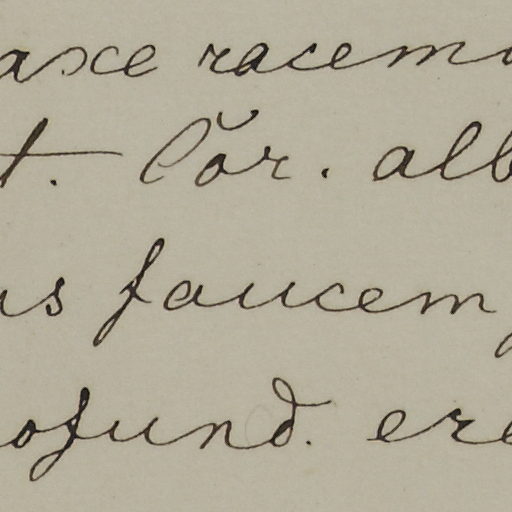 axe racemo
t. Cŏr. alb
us faucem
ofund. ere